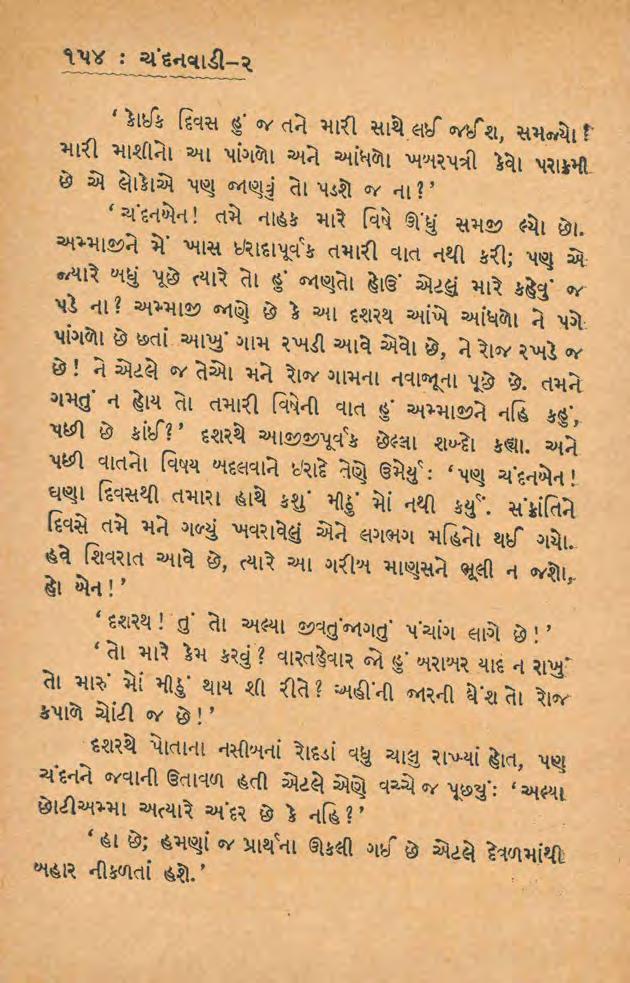 ૧૫૪ : ચંદનવાડી–૨
‘ કોઈક દિવસ હું જ તને મારી સાથે લઈ જઈશ, સમજ્યો ?
મારી માશીનો આ પાંગળો અને આંધળો ખબરપત્રી કેવો પરાક્રમી
છે એ લોકોએ પણ જાણવું તો પડશે જ ના ? ’
‘ ચંદનબેન ! તમે નાહક મારે વિષે ઊંધું સમજી લ્યો છો.
અમ્માજીને મેં ખાસ ઇરાદાપૂર્વક તમારી વાત નથી કરી; પણ એ
જ્યારે બધું પૂછે ત્યારે તો હું જાણતો હોઉં એટલું મારે કહેવું જ
પડે ના ? અમ્માજી જાણે છે કે આ દશરથ આંખે આંધળો ને પગે
પાંગળો છે છતાં આખું ગામ રખડી આવે એવો છે, ને રોજ રખડે જ
છે ! ને એટલે જ તેઓ મને રોજ ગામના નવાજૂના પૂછે છે. તમને
ગમતું ન હોય તો તમારી વિષેની વાત હું અમ્માજીને નહિ કહું,
પછી છે કાંઈ ? ’ દશરથે આજીજીપૂર્વક છેલ્લા શબ્દો કહ્યા. અને
પછી વાતનો વિષય બદલવાને ઇરાદે તેણે ઉમેર્યું : ‘ પણ ચંદનબેન !
ઘણા દિવસથી તમારા હાથે કશું મીઠું મોં નથી કર્યું. સંક્રાંતિને
દિવસે તમે મને ગળ્યું ખવરાવેલું એને લગભગ મહિનો થઈ ગયો.
હવે શિવરાત આવે છે, ત્યારે આ ગરીબ માણસને ભૂલી ન જશો,
હો બેન ! ’
‘ દશરથ ! તું તો અલ્યા જીવતુંજાગતું પંચાંગ લાગે છે ! ’
‘ તો મારે કેમ કરવું ? વારતહેવાર જો હું બરાબર યાદ ન રાખું
તો મારું મોં મીઠું થાય શી રીતે ? અહીંની જારની ઘેંશ તો રોજ
કપાળે ચોંટી જ છે ! ’
દશરથે પોતાના નસીબનાં રોદડાં વધુ ચાલુ રાખ્યાં હોત, પણ
ચંદનને જવાની ઉતાવળ હતી એટલે એણે વચ્ચે જ પૂછયું : ‘ અલ્યા
છોટીઅમ્મા અત્યારે અંદર છે કે નહિ ? ’
‘ હા છે; હમણાં જ પ્રાર્થના ઊકલી ગઈ છે એટલે દેવળમાંથી
બહાર નીકળતાં હશે. ’